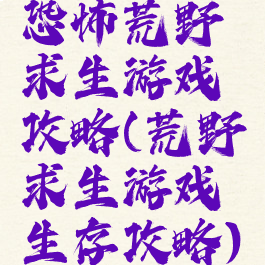 恐怖荒野
求生游戏
攻略(荒野
求生游戏
生存攻略)